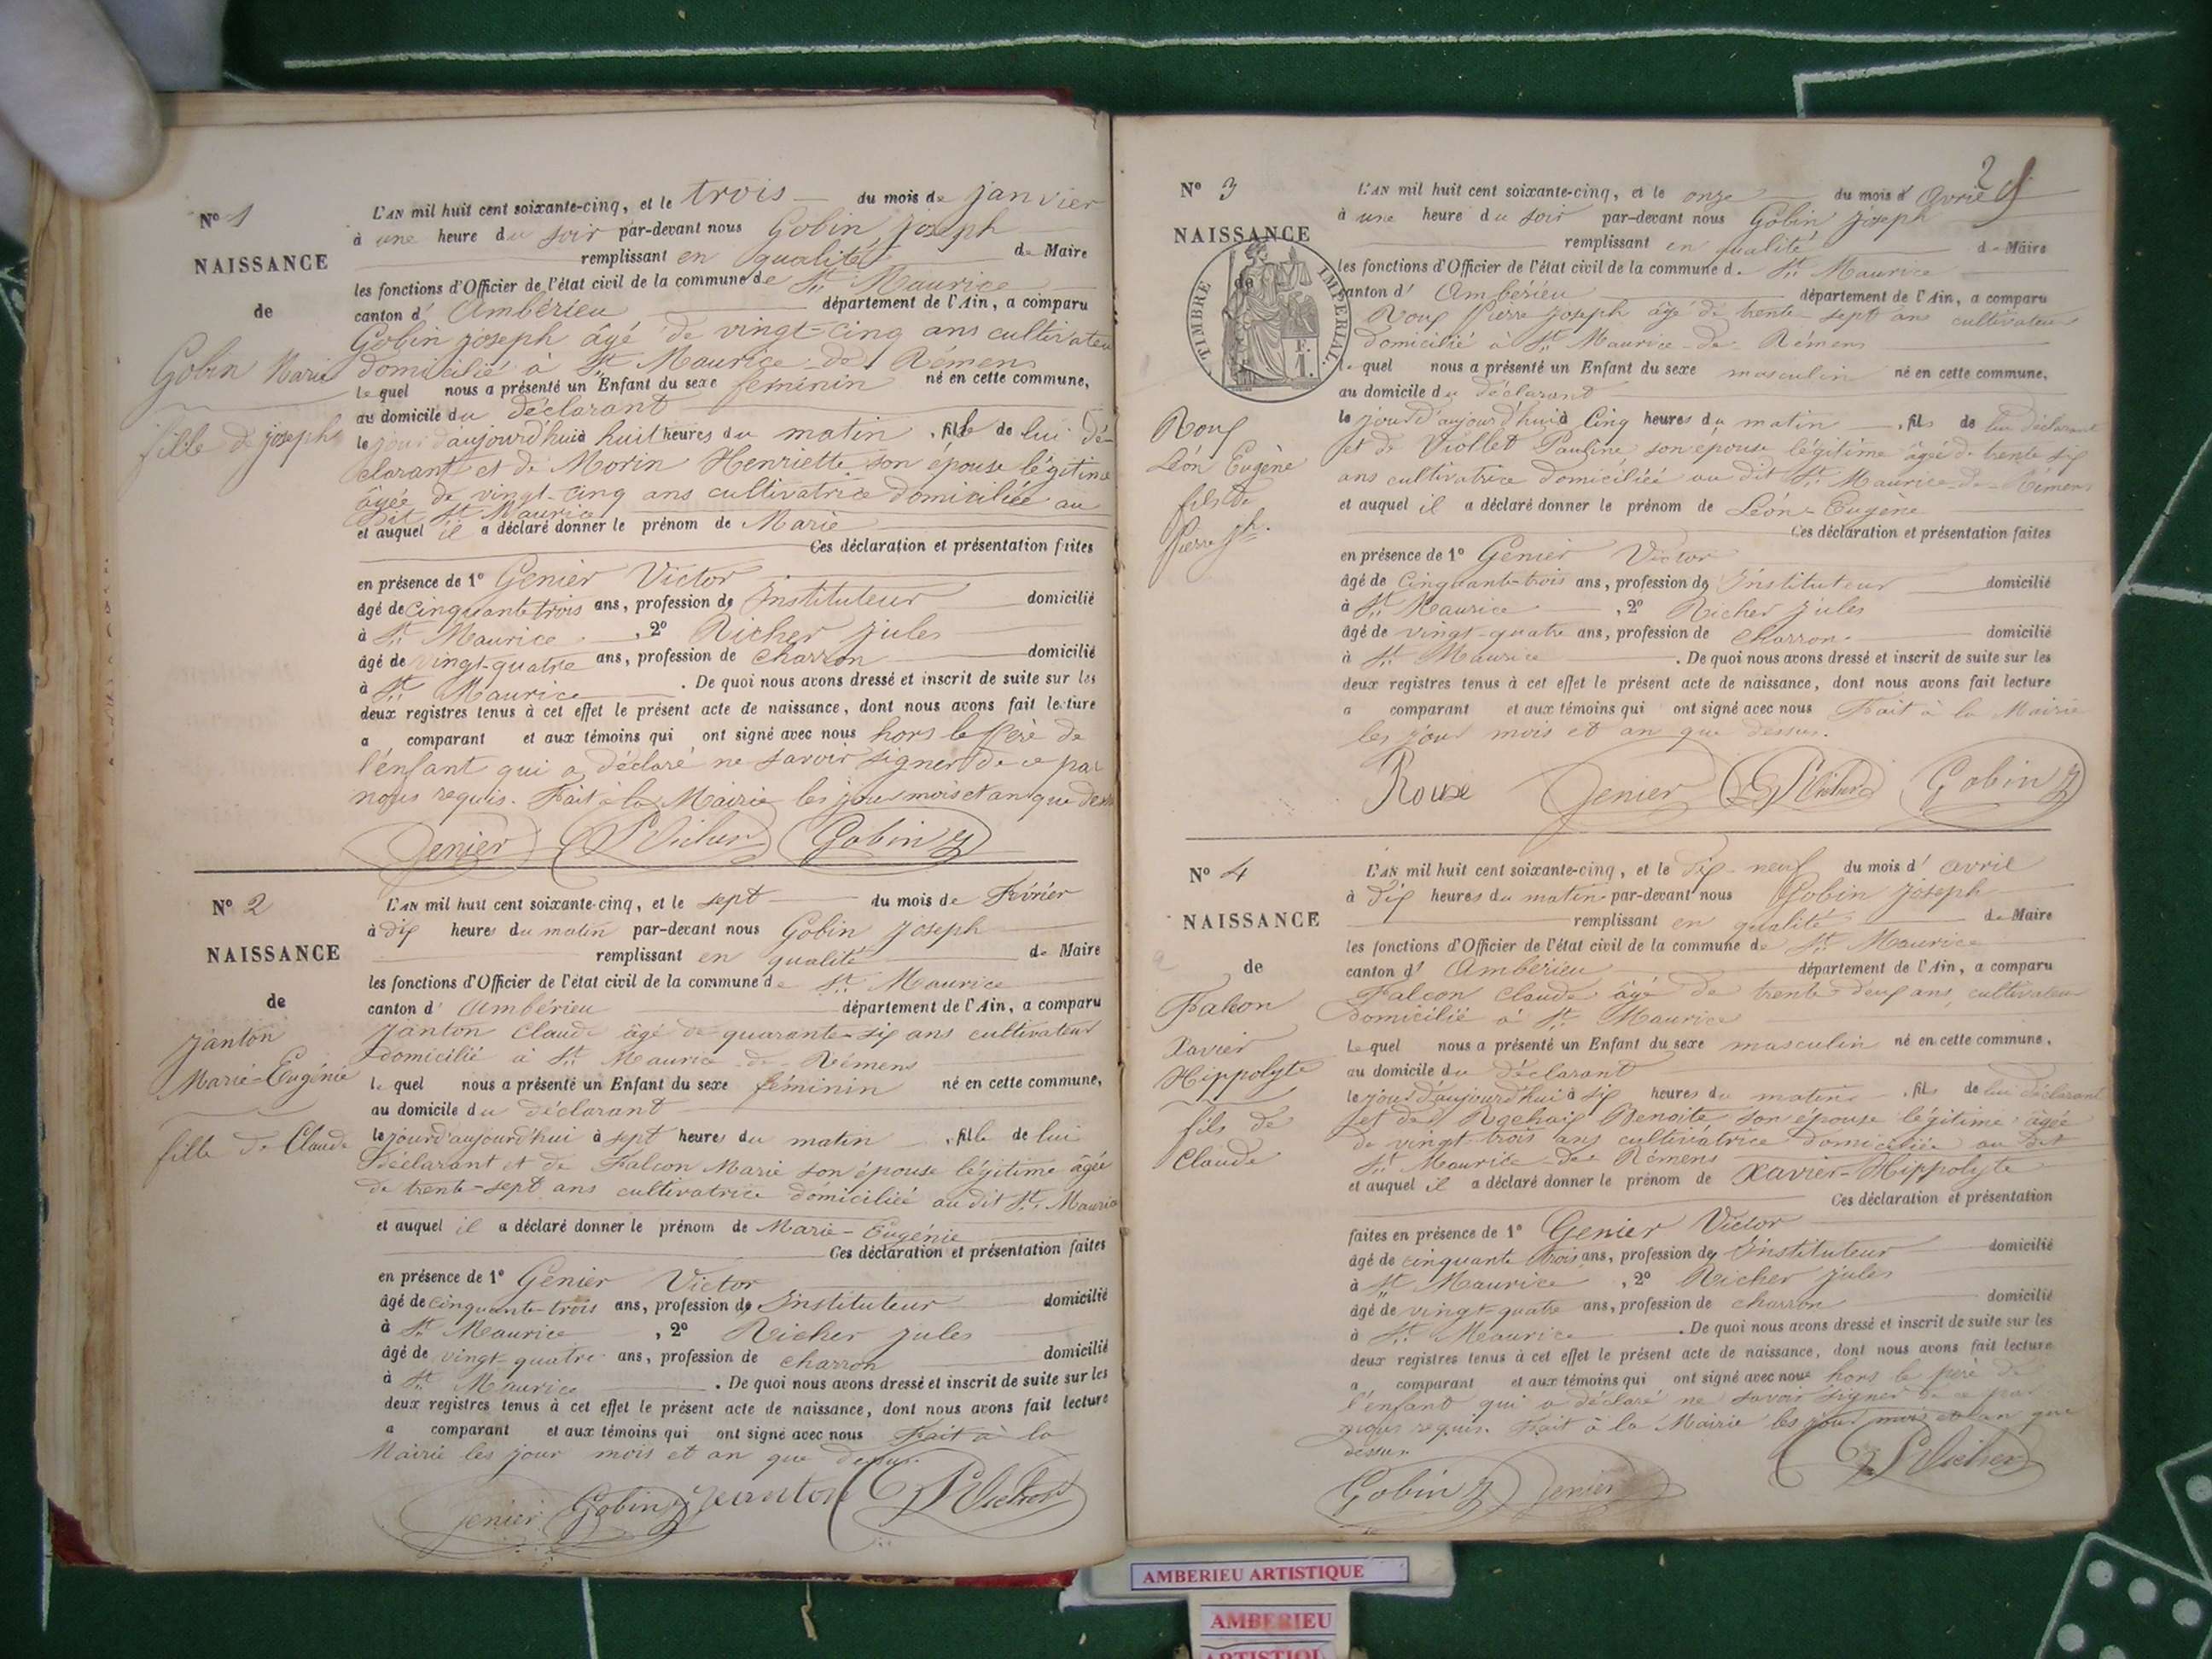 Nº 1
NAISSANCE
de
Gobin Marie
fille de joseph
L'AN mil huit cent soixante-cinq, et le trois du mois de janvier
à une heure du soir par-devant nous Gobin joseph
remplissant en qualité de Maire
les fonctions d'Officier de l'état civil de la commune de St Maurice
canton d' Ambérieu département de l'Ain, a comparu
Gobin joseph âgé de vingt-cinq ans cultivateur
domicilié à St Maurice-de-Rémens
lequel nous a présenté un Enfant du sexe féminin né en cette commune,
au domicile du déclarant
le jour d'aujourd'hui à huit heures du matin, fille de lui dé-
clarant et de Morin Henriette son épouse légitime
âgée de vingt-cinq ans cultivatrice domiciliée au
dit St Maurice
et auquel il a déclaré donner le prénom de Marie
Ces déclaration et présentation faites
en présence de 1º Genier Victor
âgé de cinquante trois ans, profession de Instituteur domicilié
à St Maurice, 2º Richer jules
âgé de vingt-quatre ans, profession de charron domicilié
à St Maurice. De quoi nous avons dressé et inscrit de suite sur les
deux registres tenus à cet effet le présent acte de naissance, dont nous avons fait lecture
a comparant et aux témoins qui ont signé avec nous hors le Père de
l'enfant qui a déclaré ne savoir signer de ce par
nous requis. Fait à la Mairie les jour mois et an que dessus
Genier JRicher Gobin J
Nº 2
NAISSANCE
de
janton
Marie-Eugénie
fille de Claude
L'AN mil huit cent soixante-cinq, et le sept du mois de Février
à dix heures du matin par-devant nous Gobin joseph
remplissant en qualité de Maire
les fonctions d'Officier de l'état civil de la commune de St Maurice
canton d' Ambérieu département de l'Ain, a comparu
janton Claude âgé de quarante-six ans cultivateur
domicilié à St Maurice-de-Rémens
lequel nous a présenté un Enfant du sexe féminin né en cette commune,
au domicile du déclarant
le jour d'aujourd'hui à sept heures du matin, fille de lui
déclarant et de Falcon Marie son épouse légitime âgée
de trente-sept ans cultivatrice domiciliée au dit St Maurice
et auquel il a déclaré donner le prénom de Marie-Eugénie
Ces déclaration et présentation faites
en présence de 1º Genier Victor
âgé de cinquante-trois ans, profession de Instituteur domicilié
à St Maurice, 2º Richer jules
âgé de vingt-quatre ans, profession de charron domicilié
à St Maurice. De quoi nous avons dressé et inscrit de suite sur les
deux registres tenus à cet effet le présent acte de naissance, dont nous avons fait lecture
a comparant et aux témoins qui ont signé avec nous Fait à la
Mairie les jour mois et an que dessus.
Genier Gobin J Jeanton JRicher
2
Nº 3
NAISSANCE
de
TIMBRE IMPÉRIAL.
1 F.
Roux
Léon Eugène
fils de
Pierre Jh.
L'AN mil huit cent soixante-cinq, et le onze du mois d' avril
à une heure du soir par-devant nous Gobin joseph
remplissant en qualité de Maire
les fonctions d'Officier de l'état civil de la commune d. St Maurice
canton d' Ambérieu département de l'Ain, a comparu
Roux Pierre joseph âgé de trente-sept ans cultivateur
domicilié à St Maurice-de-Rémens
lequel nous a présenté un Enfant du sexe masculin né en cette commune,
au domicile du déclarant
le jour d'aujourd'hui à Cinq heures du matin, fils de lui déclarant
et de Viollet Pauline son épouse légitime âgée de trente six
ans cultivatrice domiciliée au dit St Maurice-de-Rémens
et auquel il a déclaré donner le prénom de Léon-Eugène
Ces déclaration et présentation faites
en présence de 1º Genier Victor
âgé de cinquante-trois ans, profession de Instituteur domicilié
à St Maurice, 2º Richer jules
âgé de vingt-quatre ans, profession de charron domicilié
à St Maurice. De quoi nous avons dressé et inscrit de suite sur les
deux registres tenus à cet effet le présent acte de naissance, dont nous avons fait lecture
a comparant et aux témoins qui ont signé avec nous Fait à la Mairie
les jour mois et an que dessus.
Rouxe Genier JRicher Gobin J
Nº 4
NAISSANCE
de
Falcon
Xavier
Hippolyte
fils de
Claude
L'AN mil huit cent soixante-cinq, et le dix-neuf du mois d' avril
à dix heures du matin par-devant nous Gobin joseph
remplissant en qualité de Maire
les fonctions d'Officier de l'état civil de la commune de St Maurice
canton d' Ambérieu département de l'Ain, a comparu
Falcon claude âgé de trente-deux ans, cultivateur
domicilié à St Maurice
Lequel nous a présenté un Enfant du sexe masculin né en cette commune,
au domicile du déclarant
le jour d'aujourd'hui à six heures du matin, fils de lui déclarant
et de Rochaix Benoite son épouse légitime âgée
de vingt-trois ans cultivatrice domiciliée au dit
St Maurice-de-Rémens
et auquel il a déclaré donner le prénom de Xavier-Hippolyte
Ces déclaration et présentation
faites en présence de 1º Genier Victor
âgé de cinquante trois ans, profession de Instituteur domicilié
à St Maurice, 2º Richer jules
âgé de vingt-quatre ans, profession de charron domicilié
à St Maurice. De quoi nous avons dressé et inscrit de suite sur les
deux registres tenus à cet effet le présent acte de naissance, dont nous avons fait lecture
a comparant et aux témoins qui ont signé avec nous hors le père de
l'enfant qui a déclaré ne savoir signer de ce par
nous requis. Fait à la Mairie les jour mois et an que
dessus.
Gobin J Genier JRicher
AMBERIEU ARTISTIQUE
AMBERIEU
ARTISTIQU